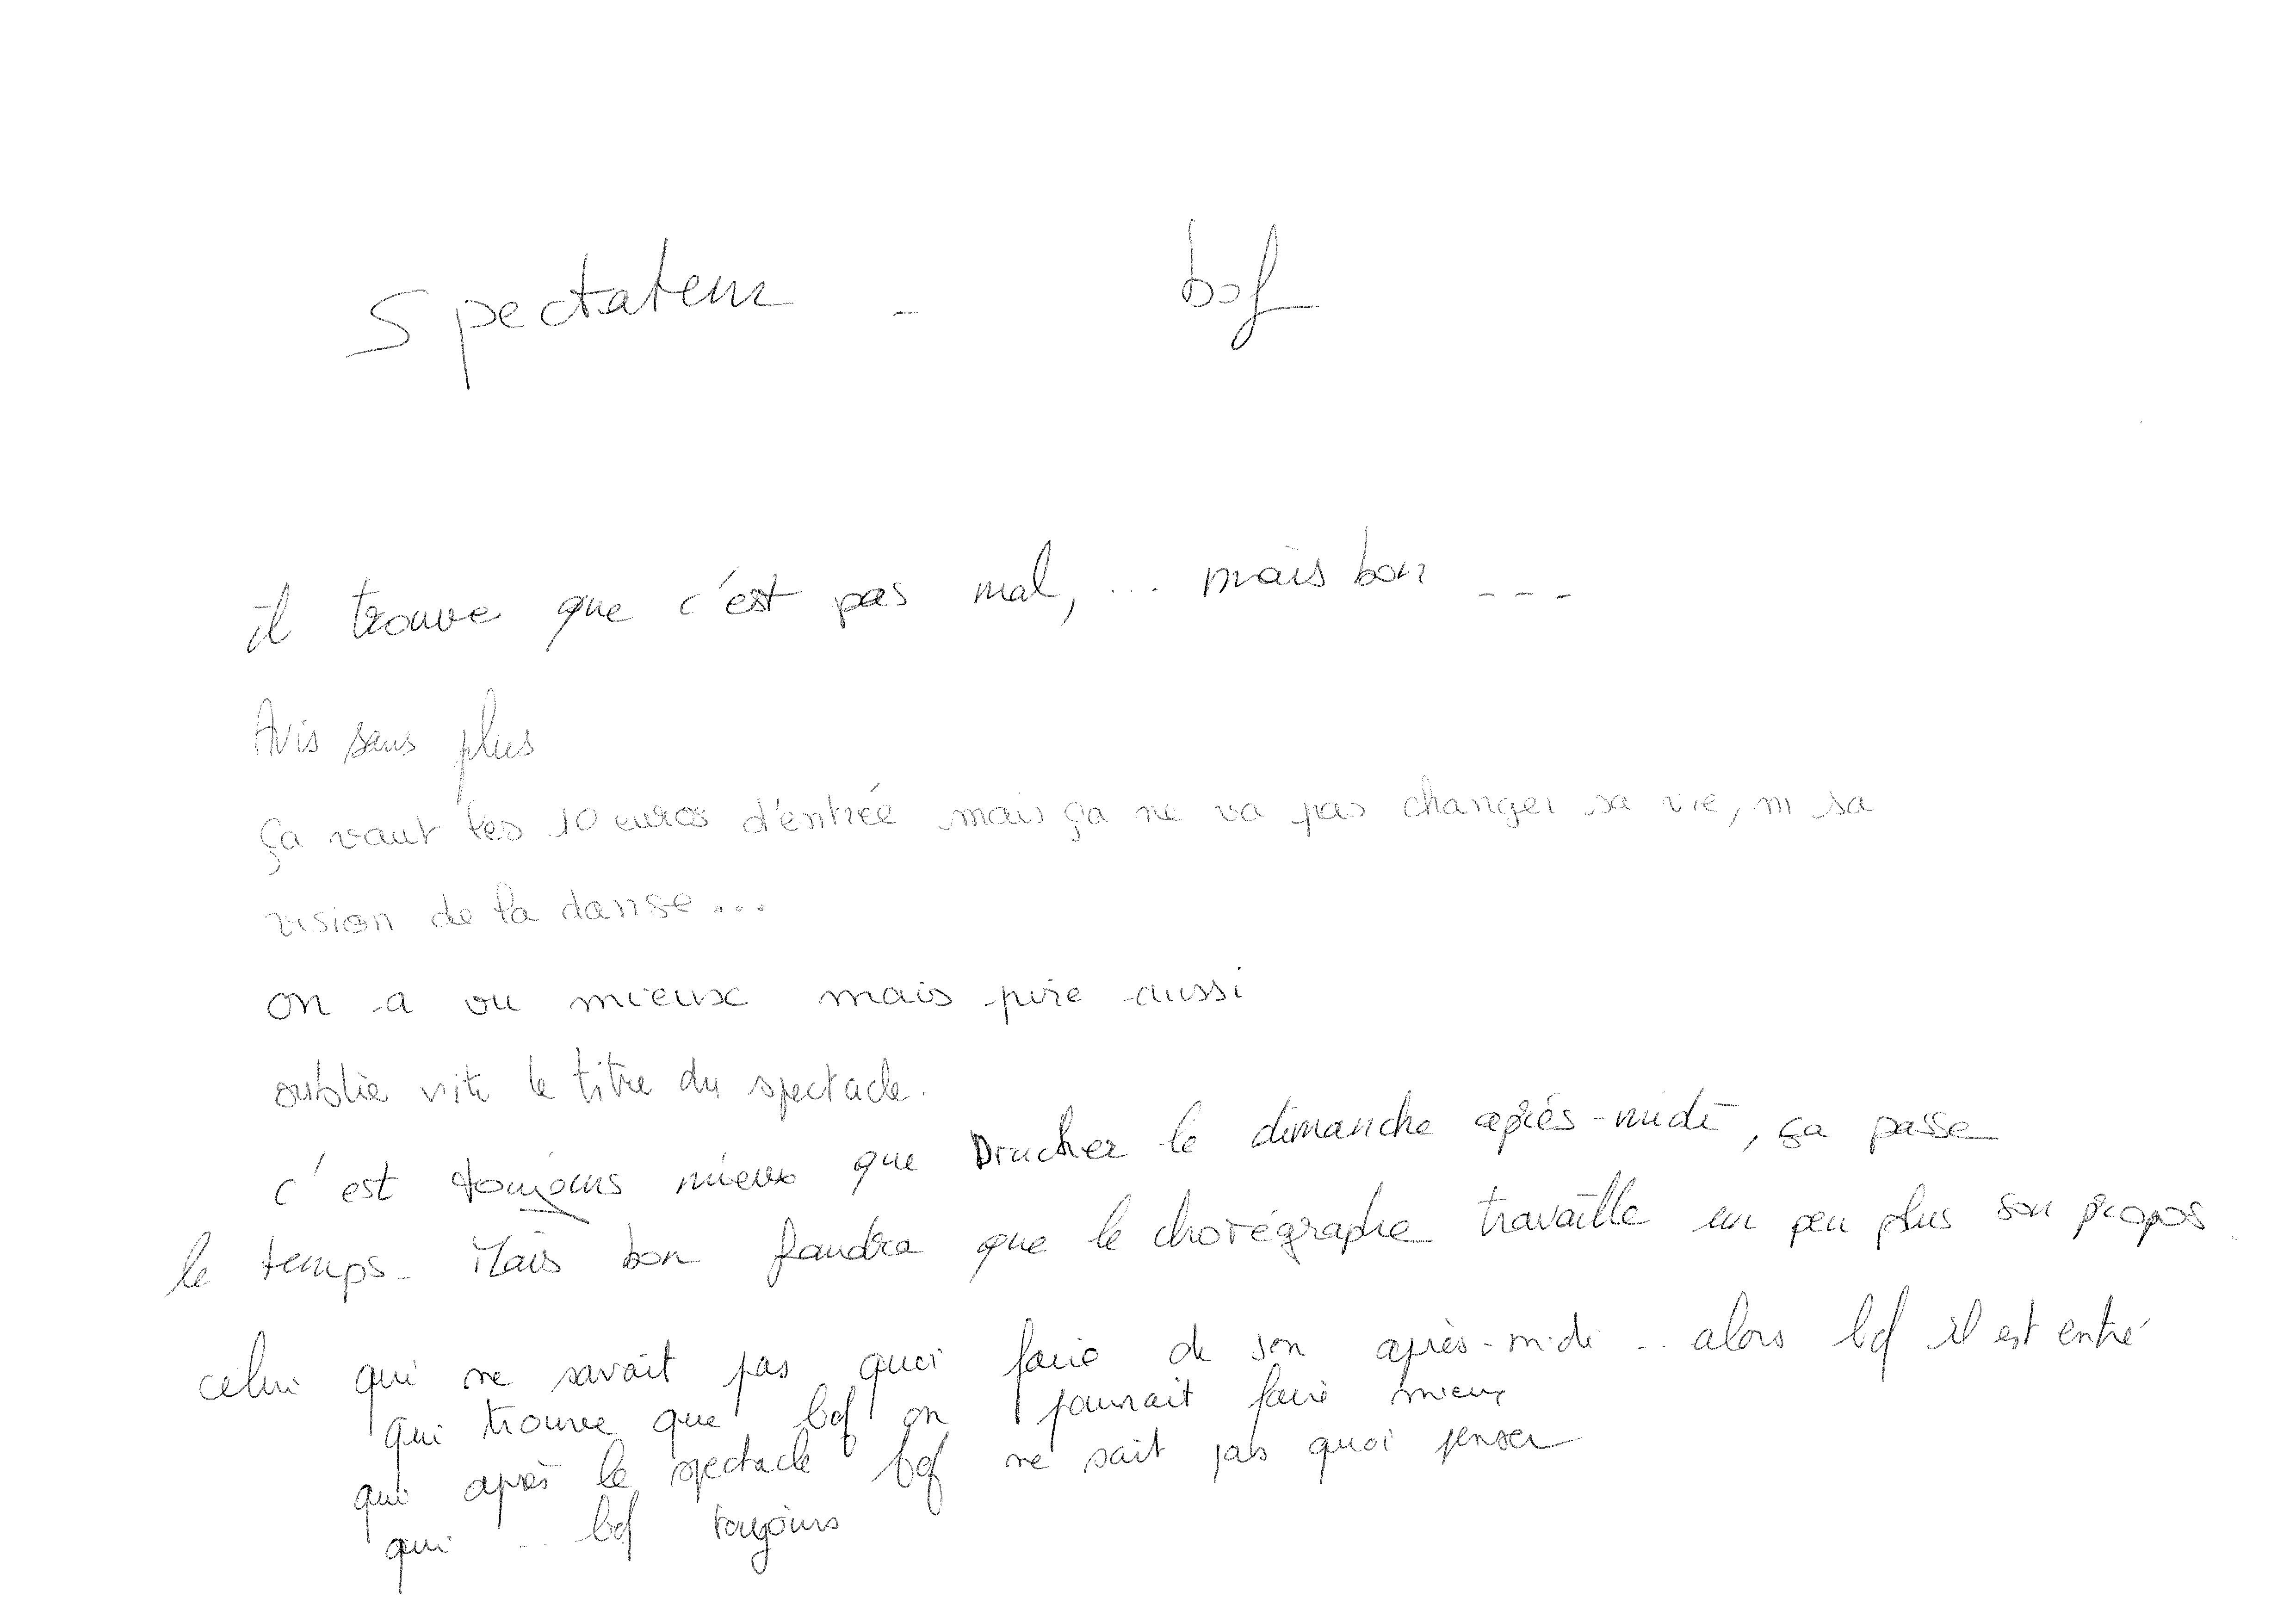 Spectateur - bof
il trouve que c'est pas mal, ... mais bon ---
Avis sans plus
ça vaut les 10 euros d'entrée mais ça ne va pas changer sa vie, ni sa
vision de la danse...
on a vu mieux mais pire aussi
oublie vite le titre du spectacle.
c'est toujours mieux que Drucker le dimanche après-midi, ça passe
le temps - Mais bon faudra que le chorégraphe travaille un peu plus son propos.
celui qui ne savait pas quoi faire de son après-midi .. alors bof il est entré
qui trouve que bof on pourrait faire mieux
qui après le spectacle bof ne sait pas quoi penser
qui .. bof toujours